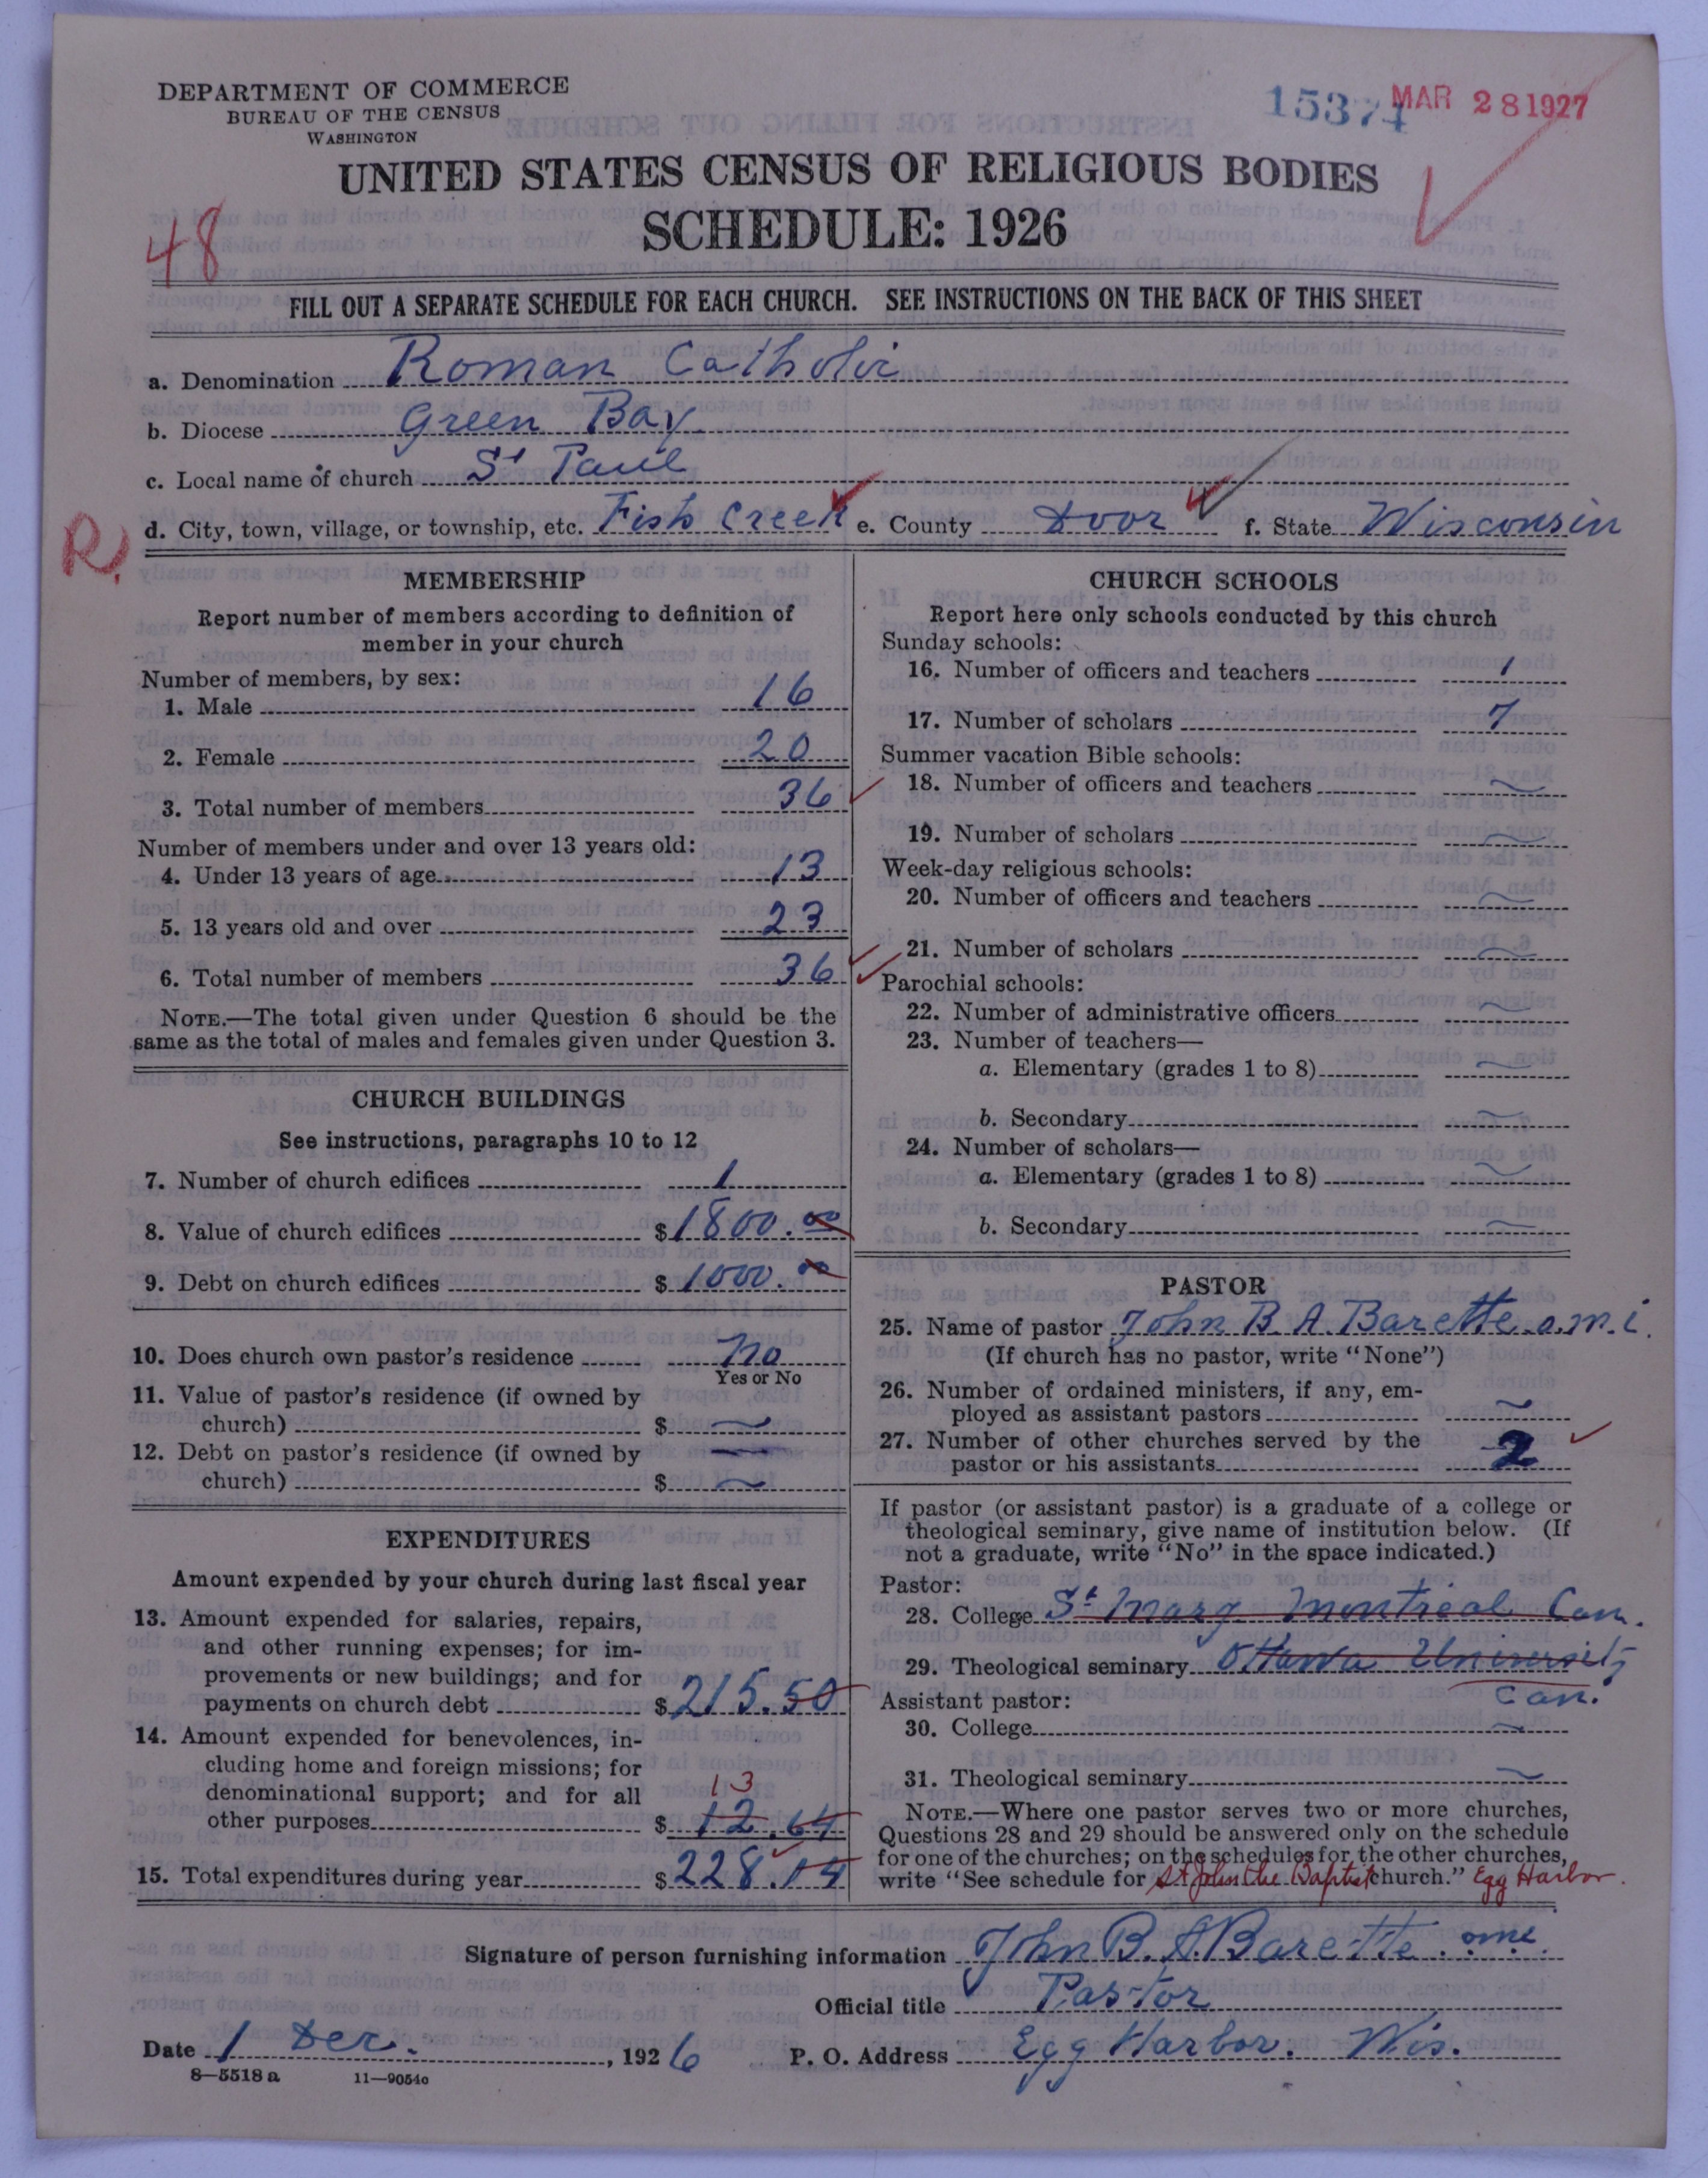 DEPARTMENT OF COMMERCE
BUREAU OF THE CENSUS
WASHINGTON
15374 MAR 28 1927
UNITED STATES CENSUS OF RELIGIOUS BODIES
SCHEDULE: 1926
48
FILL OUT A SEPARATE SCHEDULE FOR EACH CHURCH. SEE INSTRUCTIONS ON THE BACK OF THIS SHEET
a. Denomination Roman Catholic
b. Diocese Green Bay
c. Local name of church St Paul
d. City, town, village, or township, etc. Fish Creek e. County Door f. State Wisconsin
R.
MEMBERSHIP
Report number of members according to definition of
member in your church
Number of members, by sex:
1. Male 16
2. Female 20
3. Total number of members 36
Number of members under and over 13 years old:
4. Under 13 years of age 13
5. 13 years old and over 23
6. Total number of members 36
NOTE.—The total given under Question 6 should be the
same as the total of males and females given under Question 3.
CHURCH BUILDINGS
See instructions, paragraphs 10 to 12
7. Number of church edifices 1
8. Value of church edifices $1800.00
9. Debt on church edifices $1000.00
10. Does church own pastor's residence no
Yes or No
11. Value of pastor's residence (if owned by
church) $ ~
12. Debt on pastor's residence (if owned by
church) $ ~
EXPENDITURES
Amount expended by your church during last fiscal year
13. Amount expended for salaries, repairs,
and other running expenses; for im-
provements or new buildings; and for
payments on church debt $215.50
14. Amount expended for benevolences, in-
cluding home and foreign missions; for
denominational support; and for all
13
other purposes $12.64
15. Total expenditures during year $228.14
CHURCH SCHOOLS
Report here only schools conducted by this church
Sunday schools:
16. Number of officers and teachers 1
17. Number of scholars 7
Summer vacation Bible schools:
18. Number of officers and teachers ~
19. Number of scholars ~
Week-day religious schools:
20. Number of officers and teachers ~
21. Number of scholars ~
Parochial schools:
22. Number of administrative officers ~
23. Number of teachers—
a. Elementary (grades 1 to 8) ~
b. Secondary ~
24. Number of scholars—
a. Elementary (grades 1 to 8) ~
b. Secondary ~
PASTOR
25. Name of pastor John B. A. Barette o.m.i.
(If church has no pastor, write "None")
26. Number of ordained ministers, if any, em-
ployed as assistant pastors ~
27. Number of other churches served by the
pastor or his assistants 2
If pastor (or assistant pastor) is a graduate of a college or
theological seminary, give name of institution below. (If
not a graduate, write "No" in the space indicated.)
Pastor:
28. College St Mary Montreal Can.
29. Theological seminary Ottawa University
Can.
Assistant pastor:
30. College ~
31. Theological seminary ~
NOTE.—Where one pastor serves two or more churches,
Questions 28 and 29 should be answered only on the schedule
for one of the churches; on the schedules for the other churches,
write "See schedule for St John the Baptist church." Egg Harbor.
Signature of person furnishing information John B. A. Barette. omi.
Official title Pastor
Date 1 Dec., 1926 P. O. Address Egg Harbor. Wis.
8—5518 a 11—9054c